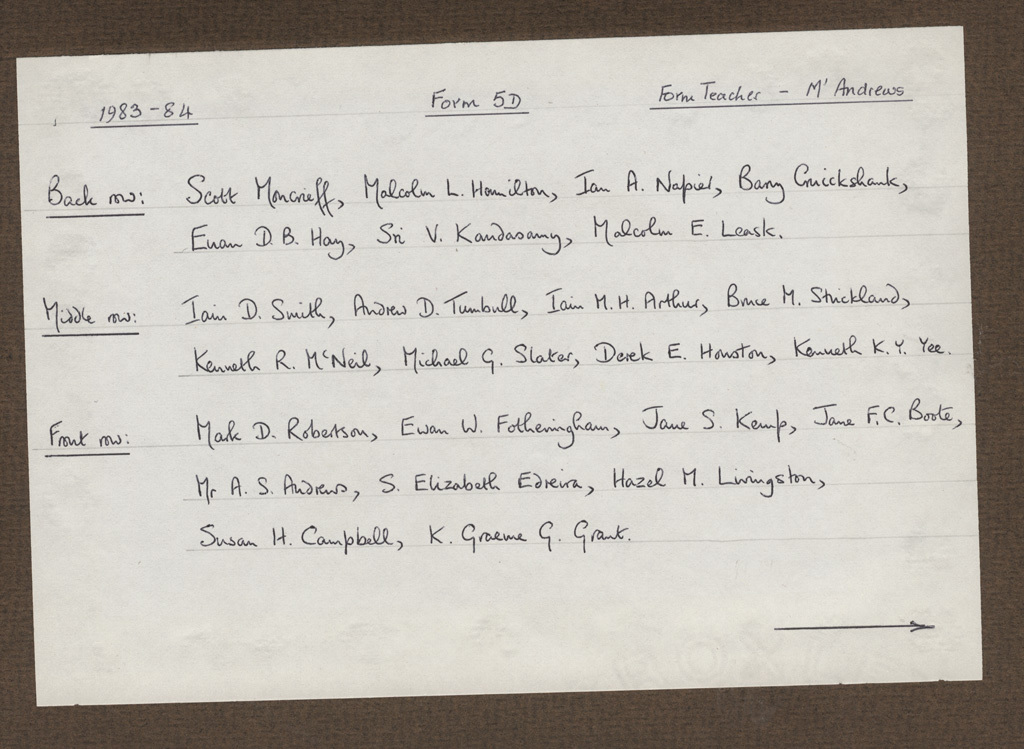 1983-84 Form 5D Form Teacher - Mr Andrews
Back row: Scott Moncrieff, Malcolm L. Hamilton, Ian A. Napier, Barry Cruickshank,
Euan D. B. Hay, Sri V. Kandasamy, Malcolm E. Leask.
Middle row: Iain D. Smith, Andrew D. Turnbull, Iain M. H. Arthur, Bruce M. Strickland,
Kenneth R. McNeil, Michael G. Slater, Derek E. Houston, Kenneth K. Y. Yee.
Front row: Mark D. Robertson, Ewan W. Fotheringham, Jane S. Kemp, Jane F. C. Boote,
Mr A. S. Andrews, S. Elizabeth Edreira, Hazel M. Livingston,
Susan H. Campbell, K. Graeme G. Grant.